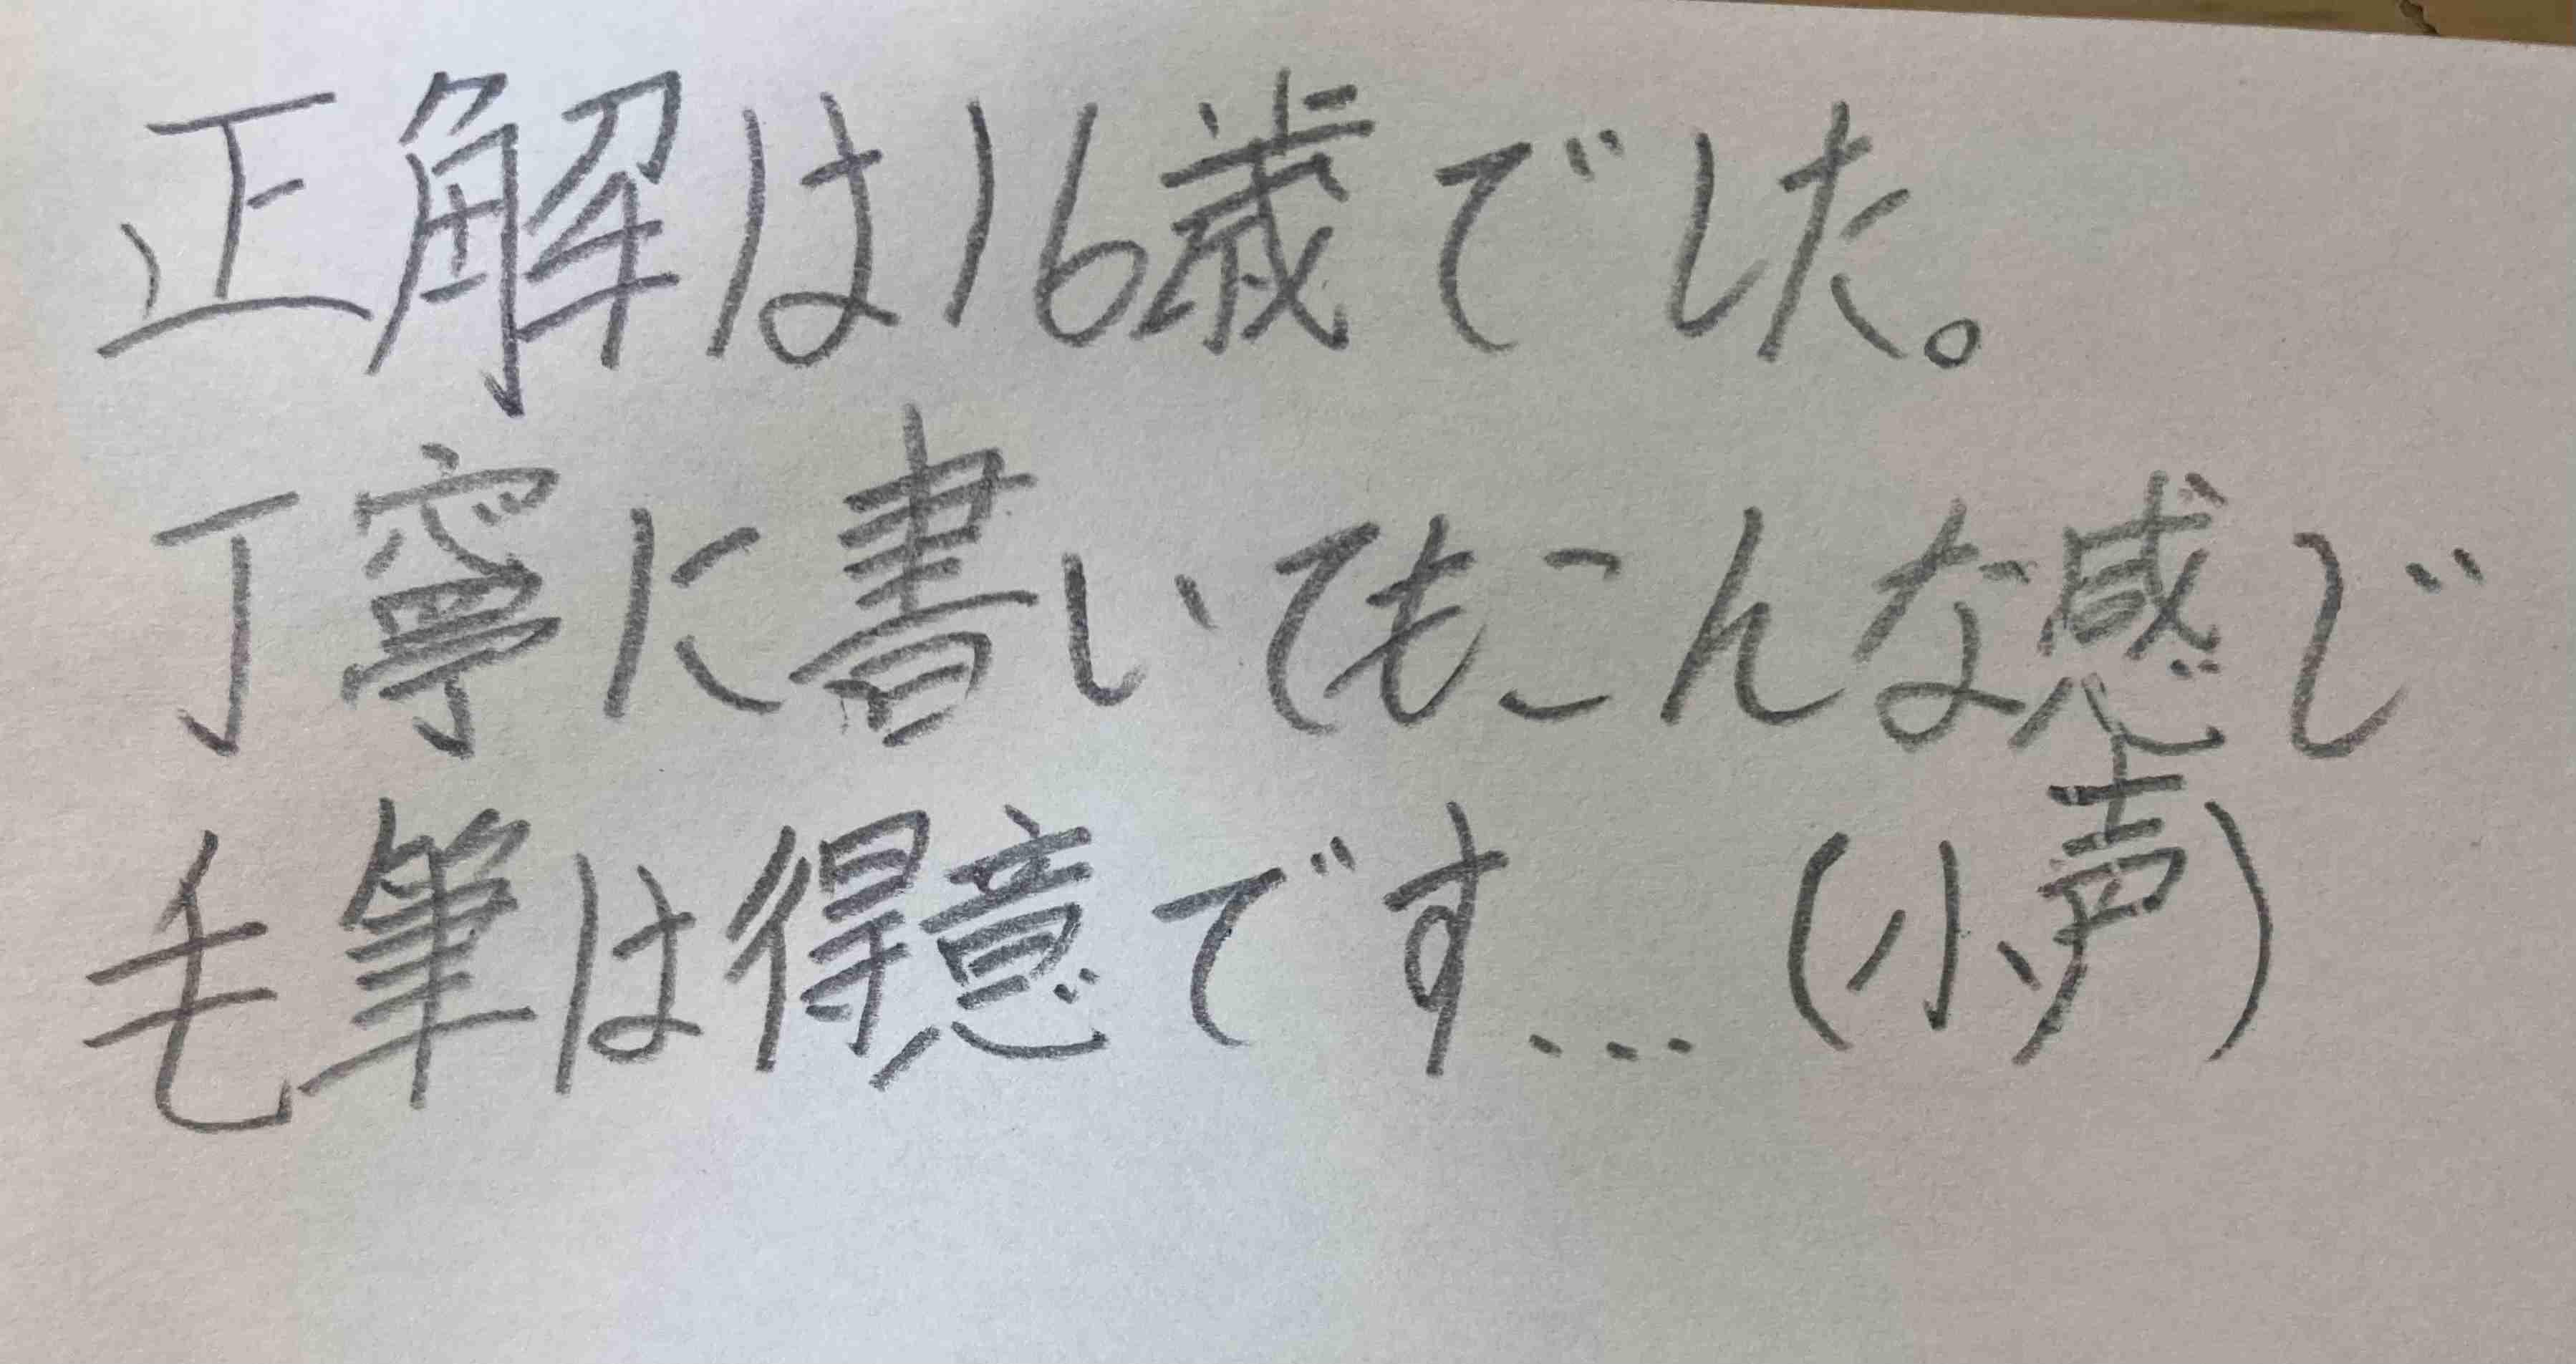 正解は16歳でした。
丁寧に書いてもこんな感じ
毛筆は得意です...(小声)